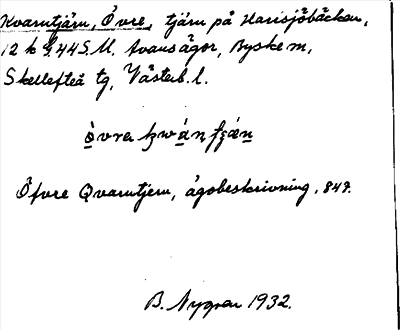 Kvarntjärn, Övre, tjärn på Harisjöbäcken,
12 k S.M. Avans ägor, Byske sn,
Skellefteå tg, Västerb. l.
Öfvre Qvarntjern, ägobeskrivning, 847.
B. Nygren 1932.